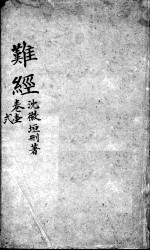 難經
卷壹
弍
沈微垣刪著